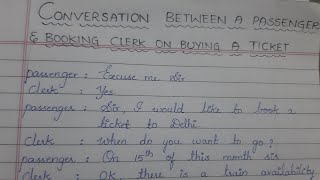 CONVERSATION BETWEEN A PASSENGER
& BOOKING CLERK ON BUYING A TICKET
passenger : Excuse me Sir
Clerk : Yes
passenger : Sir, I would like to book a
ticket to Delhi.
Clerk : When do you want to go?
passenger : On 15th of this month sir
Clerk : OK, there is a train availability